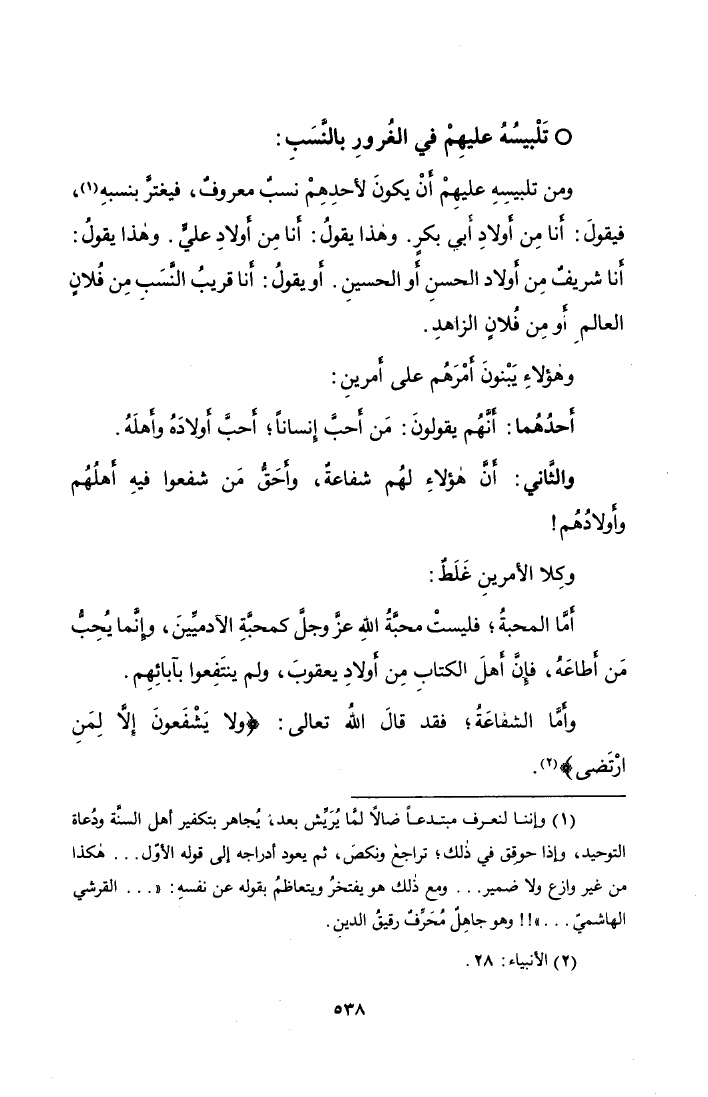 ○ تَلْبيسُهُ عليهِمْ في الغُرورِ بالنَّسَبِ :
ومن تلبيسِهِ عليهِمْ أَنْ يكونَ لأحدِهِمْ نسبٌ معروفٌ، فيغترَّ بنسبِهِ(١)،
فيقولَ : أَنا مِن أَولادِ أَبي بكرٍ. وهٰذا يقولُ : أَنا مِن أَولادِ عليٍّ. وهٰذا يقولُ :
أَنا شريفٌ مِن أَولادِ الحسنِ أَو الحسينِ. أَو يقولُ : أَنا قريبُ النَّسَبِ مِن فُلانٍ
العالمِ أَو مِن فُلانٍ الزاهدِ.
وهٰؤلاءِ يَبْنونَ أَمْرَهُم على أَمرينِ :
أَحدُهُما : أَنَّهُم يقولونَ : مَن أَحبَّ إِنساناً؛ أَحبَّ أَولادَهُ وأَهلَهُ.
والثَّاني : أَنَّ هٰؤلاءِ لهُم شفاعةٌ، وأَحَقُّ مَن شفعوا فيهِ أَهلُهُم
وأَولادُهُم !
وكِلا الأمرينِ غَلَطٌ :
أَمَّا المحبةُ؛ فليستْ محبَّةُ اللهِ عزَّ وجلَّ كمحبَّةِ الآدميِّينَ، وإِنَّما يُحِبُّ
مَن أَطاعَهُ، فإِنَّ أَهلَ الكتابِ مِن أَولادِ يعقوبَ، ولم ينتَفِعوا بآبائِهِم.
وأَمَّا الشفاعَةُ؛ فقد قالَ اللهُ تعالى : ﴿ولا يَشْفَعونَ إِلَّا لِمَنِ
ارْتَضى﴾(٢).
(١) وإننا لنعرف مبتدعاً ضالاً لمَّا يُرَيِّش بعد، يُجاهر بتكفير أهل السنَّة ودُعاة
التوحيد، وإذا حوقق في ذٰلك؛ تراجعَ ونكصَ، ثم يعود أدراجه إلى قوله الأوّل... هٰكذا
من غير وازع ولا ضمير... ومع ذٰلك هو يفتخرُ ويتعاظمُ بقوله عن نفسهِ : «... القرشي
الهاشميّ...»!! وهو جاهِلٌ مُحَرِّفٌ رقيقُ الدينِ.
(٢) الأنبياء : ٢٨.
٥٣٨